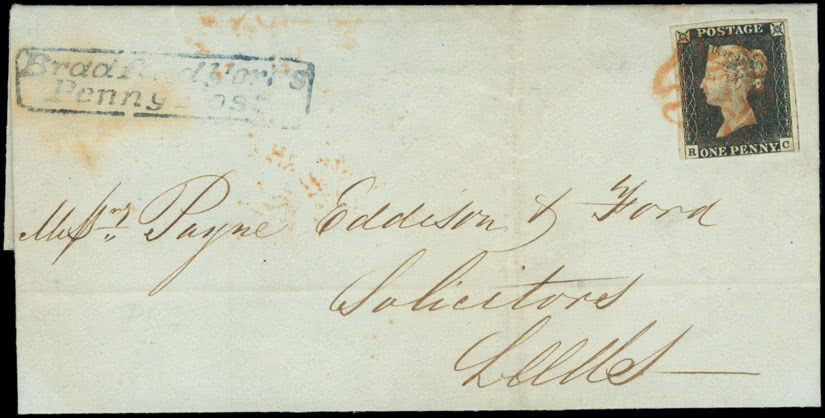 Bradford Yorks
Penny Post
POSTAGE
R ONE PENNY C
Messrs Payne Eddison & Ford
Solicitors
Leeds